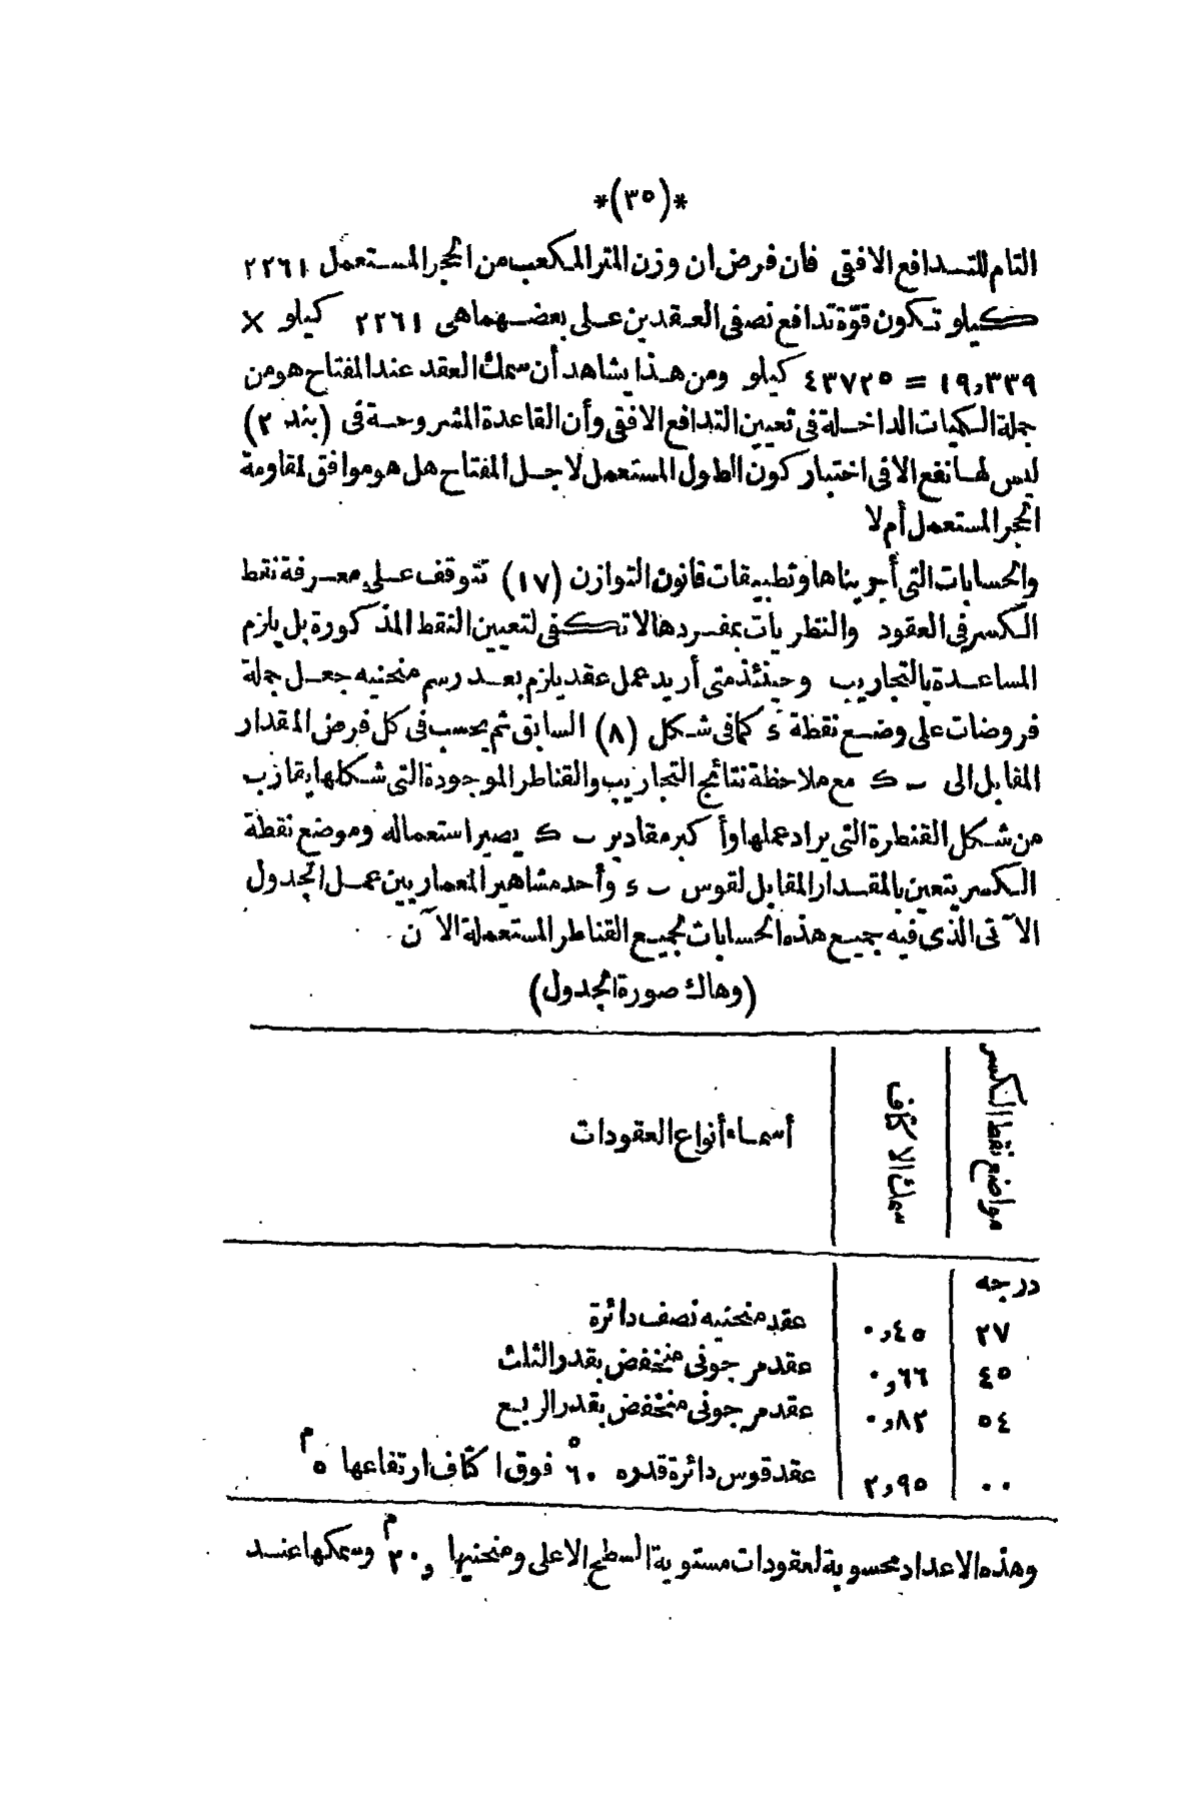 *(٣٥)*
التام للتدافع الافقى فان فرض ان وزن المتر المكعب من الحجر المستعمل ٢٢٦١
كيلو تكون قوّة تدافع نصفى العقدين على بعضهما هى ٢٢٦١ كيلو ×
١٩,٣٣٩ = ٤٣٧٢٥ كيلو ومن هذا يشاهد أن سمك العقد عند المفتاح هو من
جملة الكميات الداخلة فى تعيين التدافع الافقى وأن القاعدة المشروحة فى (بند ٢)
ليس لها نفع الا فى اختبار كون الطول المستعمل لاجل المفتاح هل هو موافق لمقاومة
الحجر المستعمل أم لا
والحسابات التى أجريناها وتطبيقات قانون التوازن (١٧) تتوقف على معرفة نقط
الكسر فى العقود والنظريات بمفردها لا تكفى لتعيين النقط المذكورة بل يلزم
المساعدة بالتجاريب وحينئذ متى أريد عمل عقد يلزم بعد رسم منحنيه جعل جملة
فروضات على وضع نقطة ء كما فى شكل (٨) السابق ثم يحسب فى كل فرض المقدار
المقابل الى ب ك مع ملاحظة نتائج التجاريب والقناطر الموجودة التى شكلها يقارب
من شكل القنطرة التى يراد عملها وأكبر مقادير ب ك يصير استعماله وموضع نقطة
الكسر يتعين بالمقدار المقابل لقوس ب ء وأحد مشاهير المعماريين عمل الجدول
الآتى الذى فيه جميع هذه الحسابات لجميع القناطر المستعملة الآن
(وهاك صورة الجدول)
مواضع نقط الكسر سمك الاكتاف أسماء أنواع العقودات
درجه
٢٧ ٠,٤٥ عقد منحنيه نصف دائرة
٤٥ ٠,٦٦ عقد مرجونى منخفض بقدر الثلث
٥٤ ٠,٨٢ عقد مرجونى منخفض بقدر الربع
٠٠ ٢,٩٥ عقد قوس دائرة قدره ٦٠° فوق اكتاف ارتفاعها ٥م
وهذه الاعداد محسوبة لعقودات مستوية السطح الاعلى ومنحنيها ٢٠م, وسمكها عند